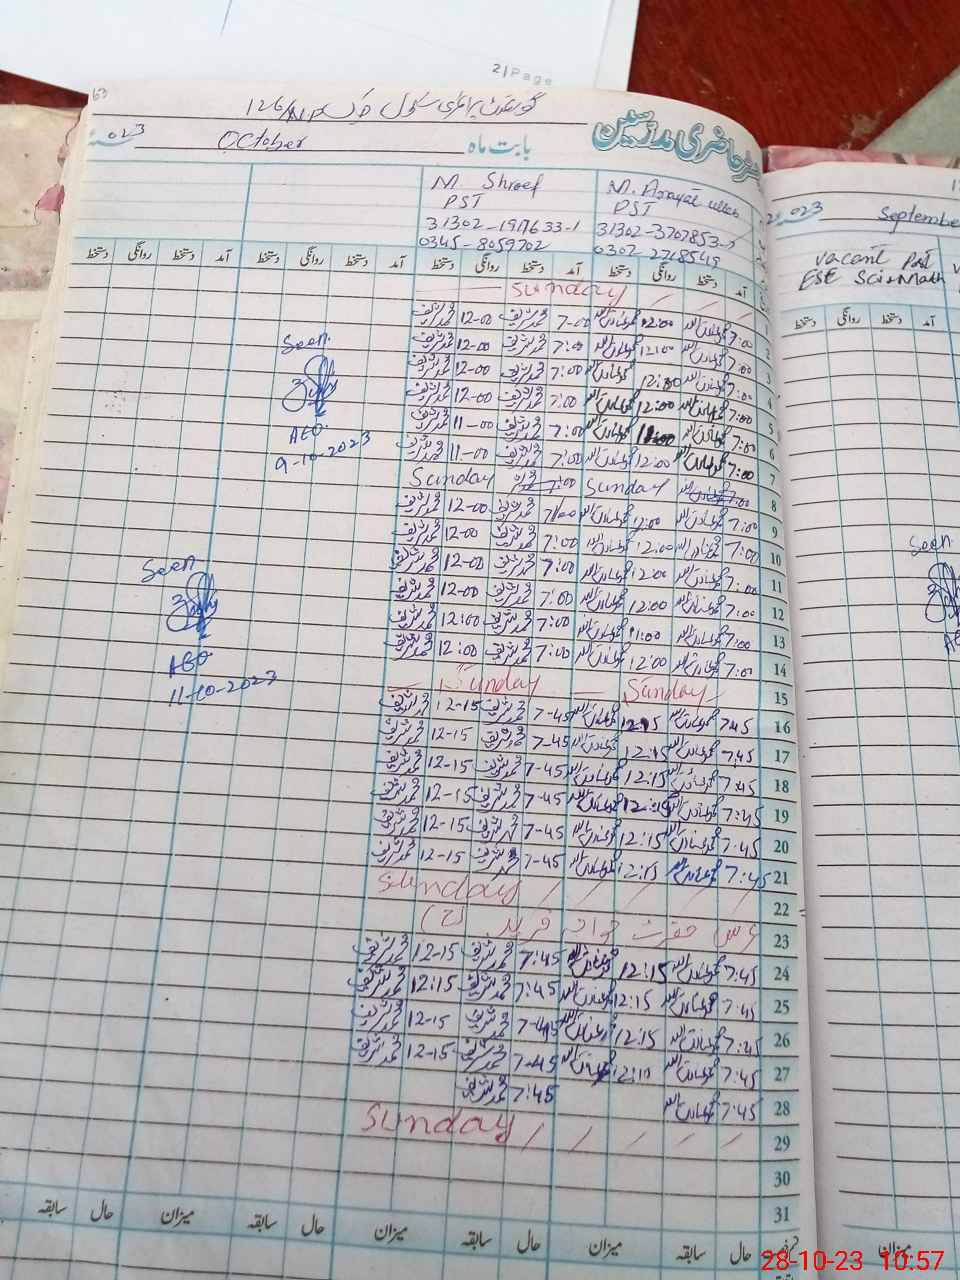 2 | Page
63
گورنمنٹ پرائمری سکول چک 126/NP
حاضری مدرسین
بابت ماہ October 023
M. Shreef
PST
31302-1917633-1
0345-8059702
PST
0302 2718549
آمد دستخط روانگی دستخط آمد دستخط روانگی دستخط آمد دستخط روانگی دستخط
Sunday
1 7:00 محمد عنایت اللہ 12:00 محمد عنایت اللہ 7-00 محمد شریف 12-00 محمد شریف
2 7:00 محمد عنایت اللہ 12:00 محمد عنایت اللہ 7:00 محمد شریف 12-00 محمد شریف
3 7:00 محمد عنایت اللہ 12:00 محمد عنایت اللہ 7:00 محمد شریف 12-00 محمد شریف
4 7:00 محمد عنایت اللہ 12:00 محمد عنایت اللہ 7:00 محمد شریف 12-00 محمد شریف
5 7:00 محمد عنایت اللہ محمد عنایت اللہ 7:00 محمد شریف 11-00 محمد شریف
6 7:00 محمد عنایت اللہ 12:00 محمد عنایت اللہ 7:00 محمد شریف 11-00 محمد شریف
7 Sunday Sunday
8 7:00 محمد عنایت اللہ 12:00 محمد عنایت اللہ 7:00 محمد شریف 12-00 محمد شریف
9 7:00 محمد عنایت اللہ 12:00 محمد عنایت اللہ 7:00 محمد شریف 12-00 محمد شریف
10 7:00 محمد عنایت اللہ 12:00 محمد عنایت اللہ 7:00 محمد شریف 12-00 محمد شریف
11 7:00 محمد عنایت اللہ 12:00 محمد عنایت اللہ 7:00 محمد شریف 12-00 محمد شریف
12 7:00 محمد عنایت اللہ 11:00 محمد عنایت اللہ 7:00 محمد شریف 12:00 محمد شریف
13 7:00 محمد عنایت اللہ 12:00 محمد عنایت اللہ 7:00 محمد شریف 12:00 محمد شریف
14
15 Sunday Sunday
16 7:45 محمد عنایت اللہ 12:15 محمد عنایت اللہ 7-45 محمد شریف 12-15 محمد شریف
17 7:45 محمد عنایت اللہ 12:15 محمد عنایت اللہ 7-45 محمد شریف 12-15 محمد شریف
18 7:45 محمد عنایت اللہ 12:15 محمد عنایت اللہ 7-45 محمد شریف 12-15 محمد شریف
19 7:45 محمد عنایت اللہ 12:15 محمد عنایت اللہ 7-45 محمد شریف 12-15 محمد شریف
20 7:45 محمد عنایت اللہ 12:15 محمد عنایت اللہ 7-45 محمد شریف 12-15 محمد شریف
21 7:45 محمد عنایت اللہ 12:15 محمد عنایت اللہ 7-45 محمد شریف 12-15 محمد شریف
22 Sunday
23 عرس حضرت خواجہ فرید (رح)
24 7:45 محمد عنایت اللہ 12:15 محمد عنایت اللہ 7:45 محمد شریف 12-15 محمد شریف
25 7:45 محمد عنایت اللہ 12:15 محمد عنایت اللہ 7:45 محمد شریف 12:15 محمد شریف
26 7:45 محمد عنایت اللہ 12:15 محمد عنایت اللہ 7-45 محمد شریف 12-15 محمد شریف
27 7:45 محمد عنایت اللہ 12:10 محمد عنایت اللہ 7-45 محمد شریف 12-15 محمد شریف
28 7:45 محمد عنایت اللہ 7:45 محمد شریف
29 Sunday
30
31
حال سابقہ میزان حال سابقہ میزان حال سابقہ میزان حال سابقہ
Seen
AEO
9-10-2023
Seen
AEO
11-10-2023
023 September
Vacant Post
ESE Sci-Math
آمد دستخط روانگی دستخط
Seen
میزان
28-10-23 10:57